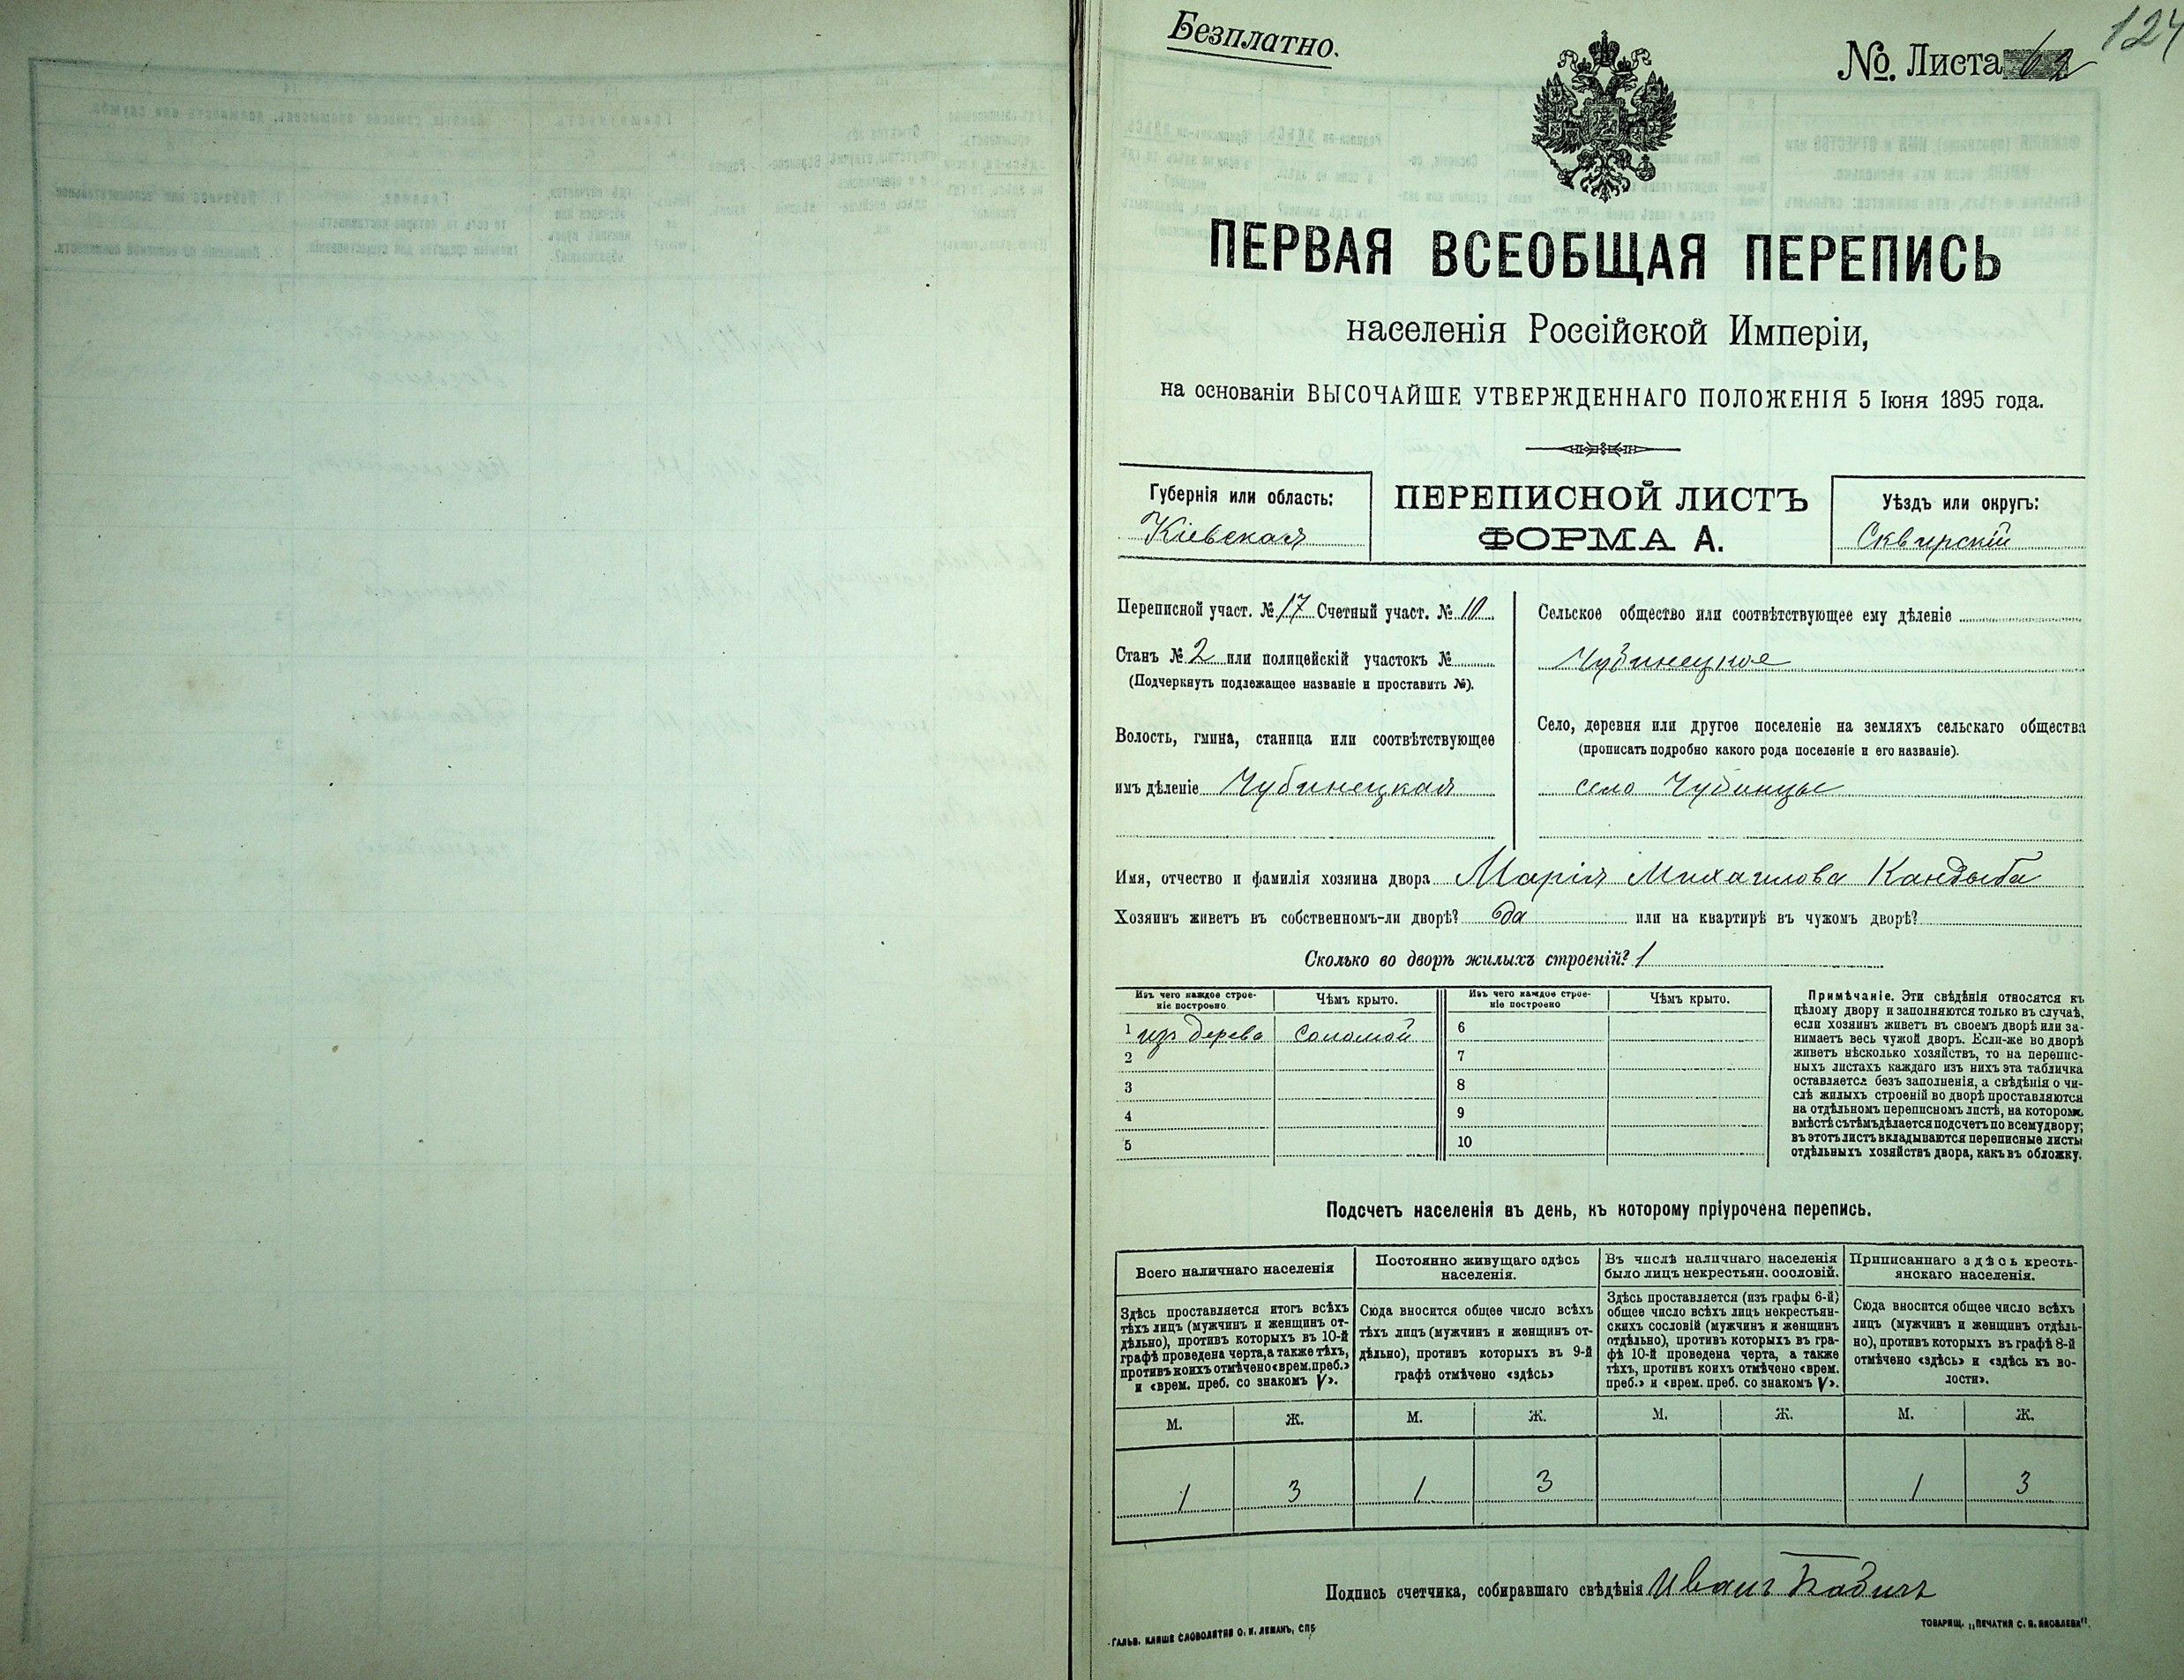 Безплатно.
№. Листа 62
124
ПЕРВАЯ ВСЕОБЩАЯ ПЕРЕПИСЬ
населенія Россійской Имперіи,
на основаніи ВЫСОЧАЙШЕ УТВЕРЖДЕННАГО ПОЛОЖЕНІЯ 5 Іюня 1895 года.
Губернія или область:
Кіевская
ПЕРЕПИСНОЙ ЛИСТЪ
ФОРМА А.
Уѣздъ или округъ:
Сквирскій
Переписной участ. № 17 Счетный участ. № 10
Станъ № 2 или полицейскій участокъ №
(Подчеркнуть подлежащее названіе и проставить №).
Волость, гмина, станица или соотвѣтствующее
имъ дѣленіе Чубинецкая
Сельское общество или соотвѣтствующее ему дѣленіе
Чубинецкое
Село, деревня или другое поселеніе на земляхъ сельскаго общества
(прописать подробно какого рода поселеніе и его названіе).
село Чубинцы
Имя, отчество и фамилія хозяина двора Марія Михаилова Кандыба
Хозяинъ живетъ въ собственномъ-ли дворѣ? да или на квартирѣ въ чужомъ дворѣ?
Сколько во дворѣ жилыхъ строеній? 1
Изъ чего каждое строе-
ніе построено
Чѣмъ крыто.
Изъ чего каждое строе-
ніе построено
Чѣмъ крыто.
1 изъ дерева соломой 6
2 7
3 8
4 9
5 10
Примѣчаніе. Эти свѣдѣнія относятся къ
цѣлому двору и заполняются только въ случаѣ,
если хозяинъ живетъ въ своемъ дворѣ или за-
нимаетъ весь чужой дворъ. Если-же во дворѣ
живетъ нѣсколько хозяйствъ, то на перепис-
ныхъ листахъ каждаго изъ нихъ эта табличка
оставляется безъ заполненія, а свѣдѣнія о чи-
слѣ жилыхъ строеній во дворѣ проставляются
на отдѣльномъ переписномъ листѣ, на которомъ
вмѣстѣ съ тѣмъ дѣлается подсчетъ по всему двору;
въ этотъ листъ вкладываются переписные листы
отдѣльныхъ хозяйствъ двора, какъ въ обложку.
Подсчетъ населенія въ день, къ которому пріурочена перепись.
Всего наличнаго населенія
Здѣсь проставляется итогъ всѣхъ
тѣхъ лицъ (мужчинъ и женщинъ от-
дѣльно), противъ которыхъ въ 10-й
графѣ проведена черта, а также тѣхъ,
противъ коихъ отмѣчено «врем. преб.»
и «врем. преб. со знакомъ V».
Постоянно живущаго здѣсь
населенія.
Сюда вносится общее число всѣхъ
тѣхъ лицъ (мужчинъ и женщинъ от-
дѣльно), противъ которыхъ въ 9-й
графѣ отмѣчено «здѣсь»
Въ числѣ наличнаго населенія
было лицъ некрестьян. сословій.
Здѣсь проставляется (изъ графы 6-й)
общее число всѣхъ лицъ некрестьян-
скихъ сословій (мужчинъ и женщинъ
отдѣльно), противъ которыхъ въ гра-
фѣ 10-й проведена черта, а также
тѣхъ, противъ коихъ отмѣчено «врем.
преб.» и «врем. преб. со знакомъ V».
Приписаннаго здѣсь кресть-
янскаго населенія.
Сюда вносится общее число всѣхъ
лицъ (мужчинъ и женщинъ отдѣль-
но), противъ которыхъ въ графѣ 8-й
отмѣчено «здѣсь» и «здѣсь къ во-
лости».
М. Ж. М. Ж. М. Ж. М. Ж.
1 3 1 3 1 3
Подпись счетчика, собиравшаго свѣдѣнія Иванъ
ГАЛЬВ. КЛИШЕ СЛОВОЛИТНИ О. И. ЛЕМАНЪ, СПБ
ТОВАРИЩ. „ПЕЧАТНЯ С. П. ЯКОВЛЕВА".